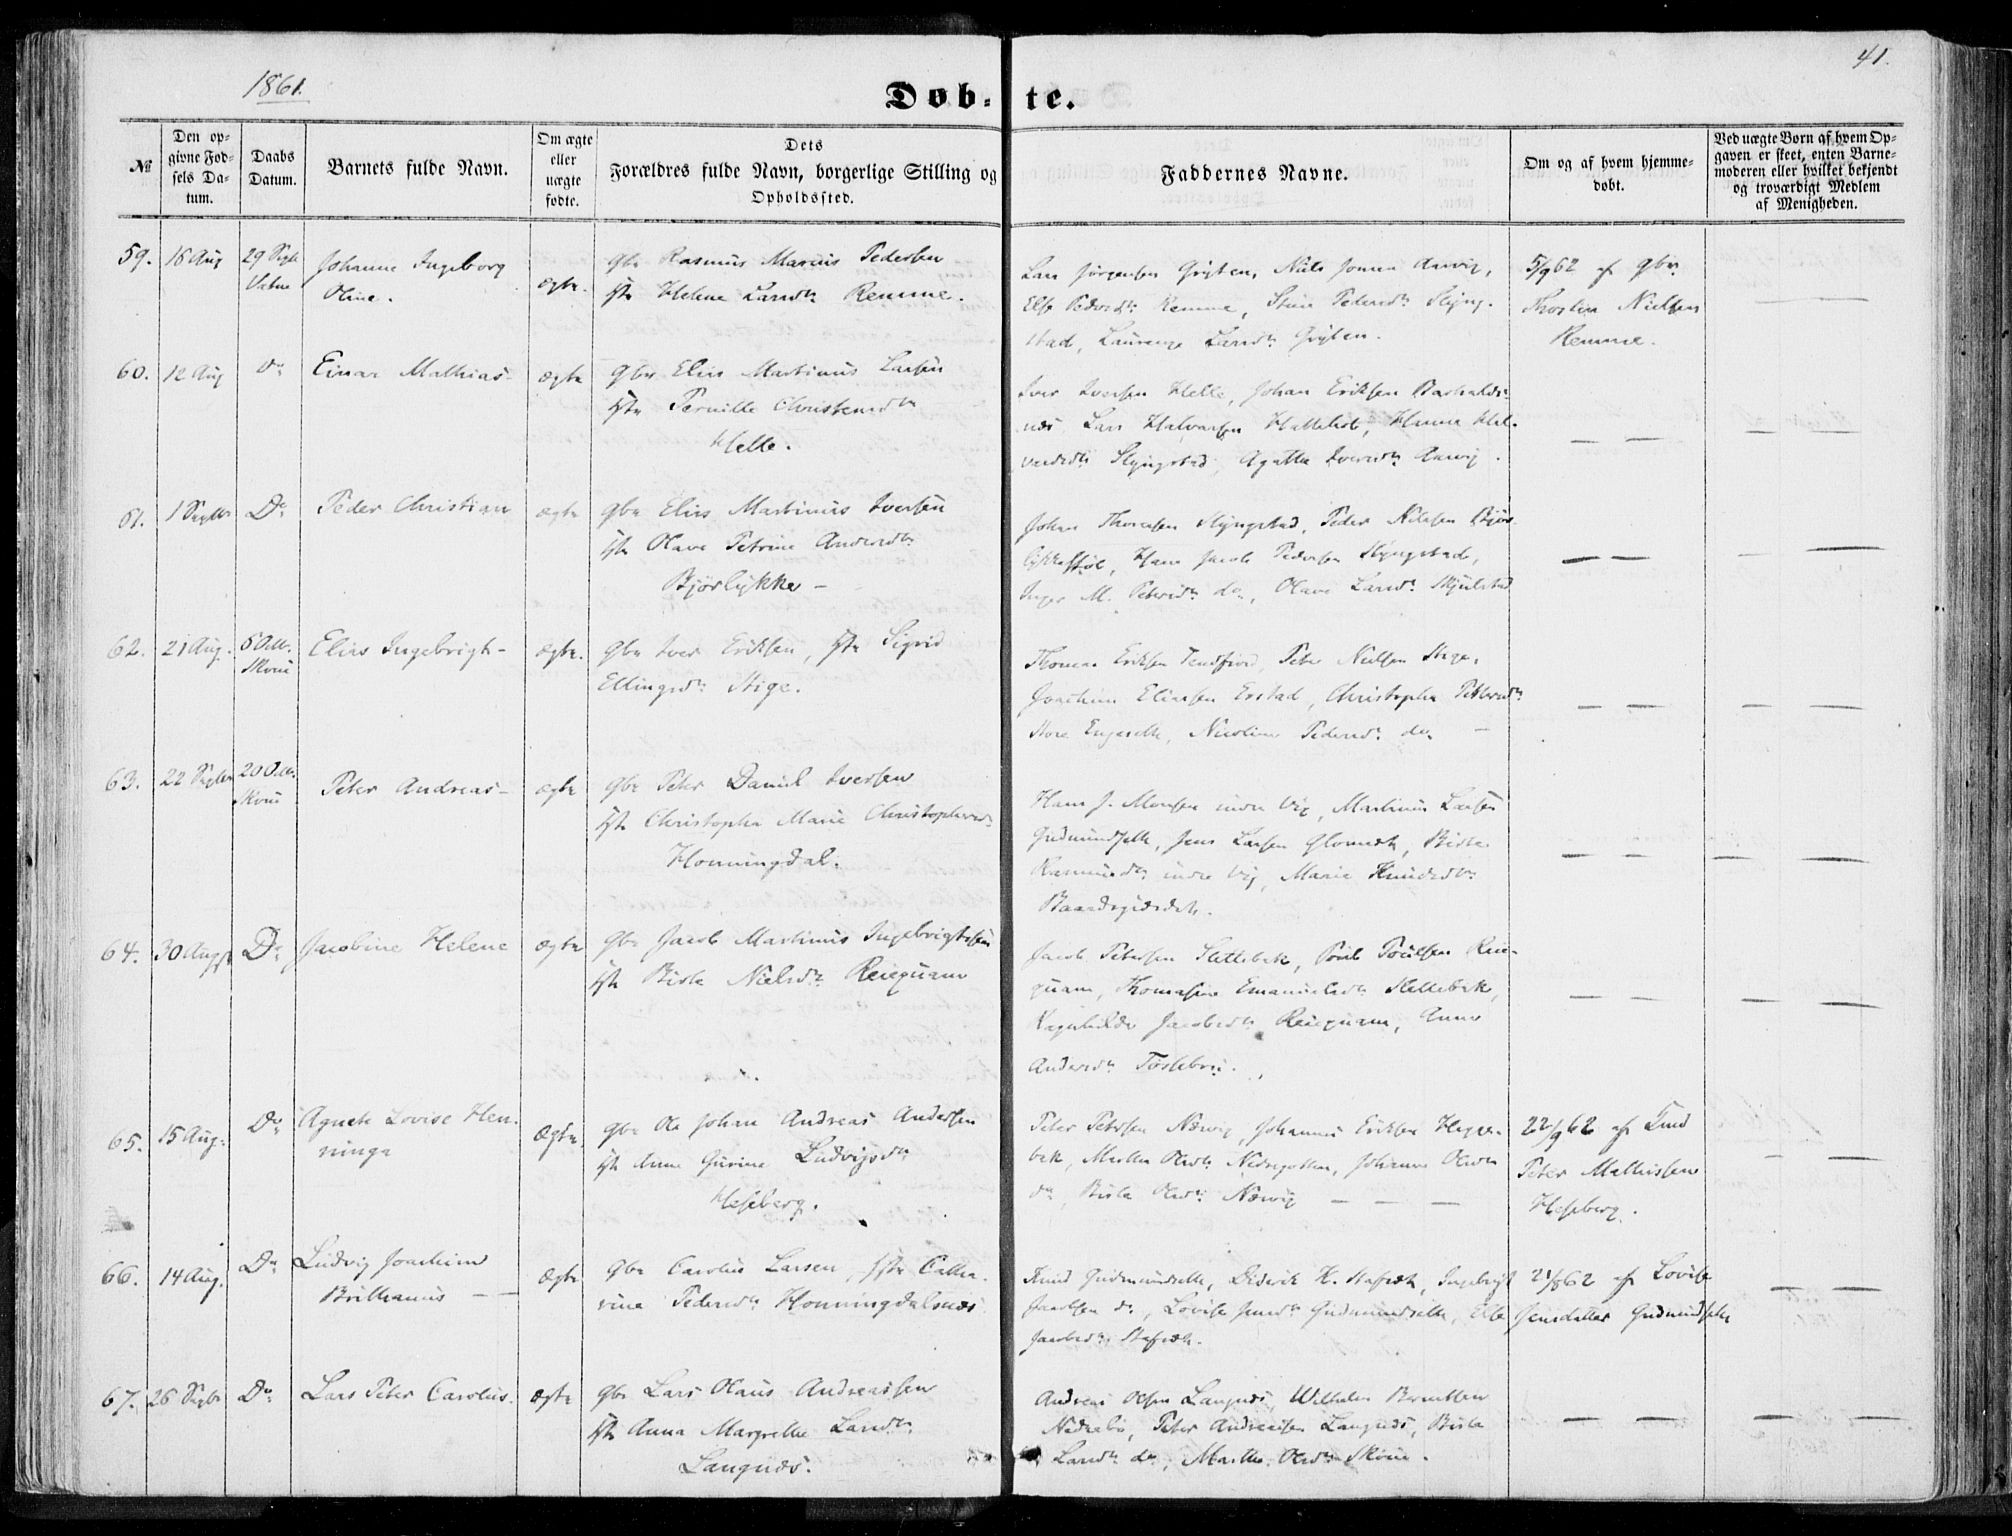 1861.
41.
Døb-te.
№
Den opgivne Fødsels Datum.
Daabs Datum.
Barnets fulde Navn.
Om ægte eller uægte fødte.
Dets Forældres fulde Navn, borgerlige Stilling og Opholdssted.
Faddernes Navne.
Om og af hvem hjemmedøbt.
Ved uægte Børn af hvem Opgaven er skeet, enten Barnemoderen eller hvilket bekjendt og troværdigt Medlem af Menigheden.
59. 18 Aug 29 Septr Vatne Johanne Ingeborg Oline. ægte.
Gbr Rasmus Marius Pedersen
Helene Larsdtr Remme.
Lars Jørgensen Gryten, Niels Jonsen
Else Pedersdtr Remme, Stine Pedersdtr Slyng-
stad, Larsdtr Gryten.
5/9 62 af Gbr
Nielsen
Remme.
60. 12 Aug Do Einar Mathias- ægte
Gbr Elias Martinus Larsen
Pernille Christensdtr
Helle.
Iver Iversen Helle, Johan Eriksen
Lars Halvorsen Hanna Hal-
vorsdtr Slyngstad, Agathe Iversdtr
61. 1 Septbr Do Peder Christian ægte
Gbr Elias Martinus Iversen
Olave Petrine Andersdtr
Bjørlykke -
Johan Thomasen Slyngstad, Peder Nielsen Bjør-
Hans Jacob Pedersen Slyngstad,
Inger M. Petersdtr do, Olave Larsdtr
62. 21 Aug. 6 Octb. Skoue Elias Ingebrigt- ægte.
Gbr Iver Eriksen, Sigrid
Ellingsdtr Stige.
Thomas Eriksen Peter Nielsen Stige,
Joachim Eliassen Erstad, Christopha Pettersdtr
Store Engeseth, Nicoline Pedersdtr do -
63. 22 Septbr 20 Octb. Skoue Peter Andreas- ægte
Gbr Peter Daniel Iversen
Christopha Marie Christophersdtr
Honningdal.
Hans J. Monsen indre Vig, Martinus Larsen
Gudmundseth, Jens Larsen Glomseth, Birte
Rasmusdtr indre Vig, Marie Knudsdtr
64. 30 August Do Jacobine Helene ægte
Gbr Jacob Martinus Ingebrigtsen
Birte Nielsdtr Reiequam
Jacob Petersen Slettebak, Poul Poulsen Reie-
quam, Thomasine Emanuelsdtr Slettebak,
Jacobsdtr Reiequam, Anne
Andersdtr
65. 15 Aug. Do Agnete Lovise Hen-
ninga ægte
Gbr Ole Johan Andreas Andersen
Anne Gurine Ludvigsdtr
Heseberg.
Peter Petersen Nørvig, Johannes Eriksen
Marthe Olsdtr Johanne Olsdtr
do, Birte Olsdtr Nørvig - - -
22/9 62 af
Peter Mathissen
Heseberg.
66. 14 Aug. Do Ludvig Joachim
Brithanus - - ægte
Gbr Carolus Larsen, Catha-
rina Pedersdtr Honningdalsnæs
Knud Gudmundseth, Didrik H. Ingebrigt
Jacobsen do, Lovise Jensdtr Gudmundseth, Else
Jacobsdtr
21/8 62 af Lovise
Jensdatter Gudmundseth
67. 26 Septbr Do Lars Peter Carolus. ægte
Gbr Lars Olaus Andreassen
Anna Margrethe Larsdtr
Langnæs.
Andreas Olsen Langnæs, Wilhelm Berntsen
Peter Andreassen Langnæs, Birte
Larsdtr do, Marthe Olsdtr Skoue.